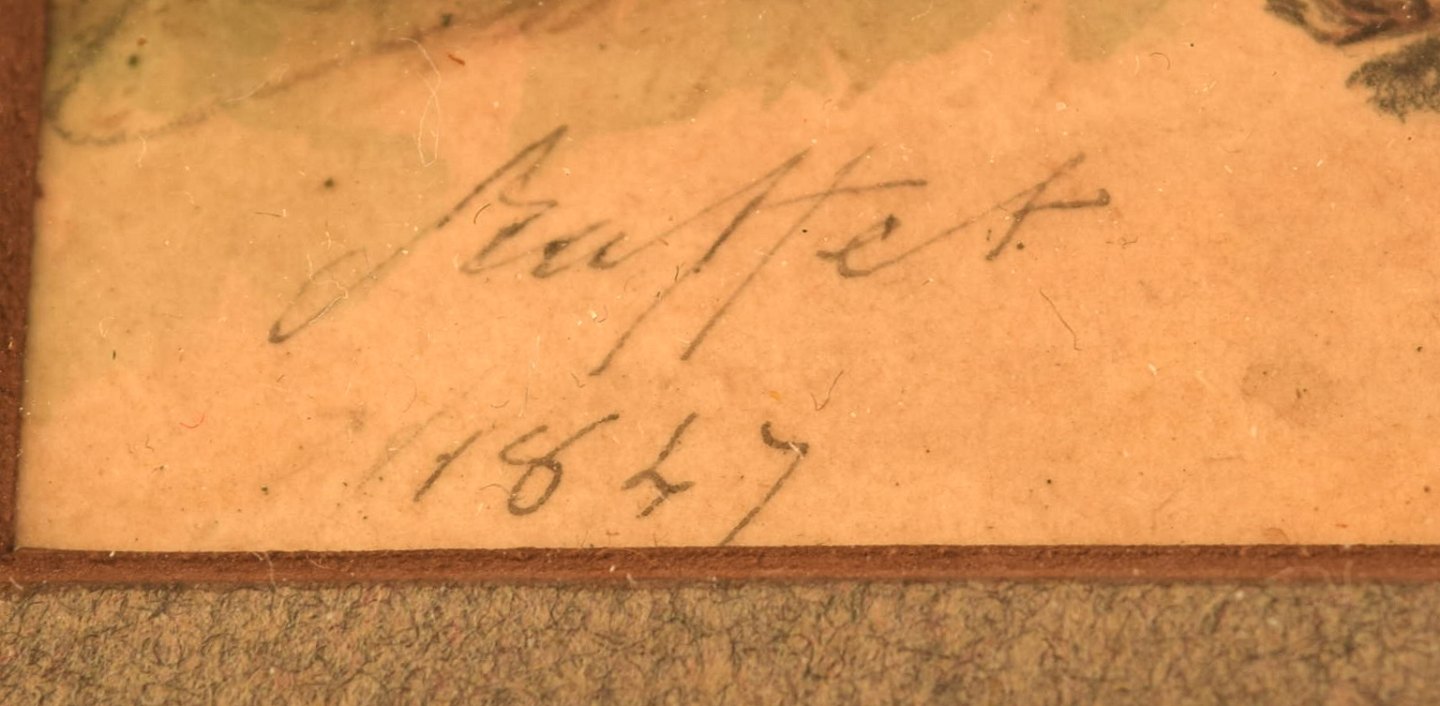 Raffet
1847